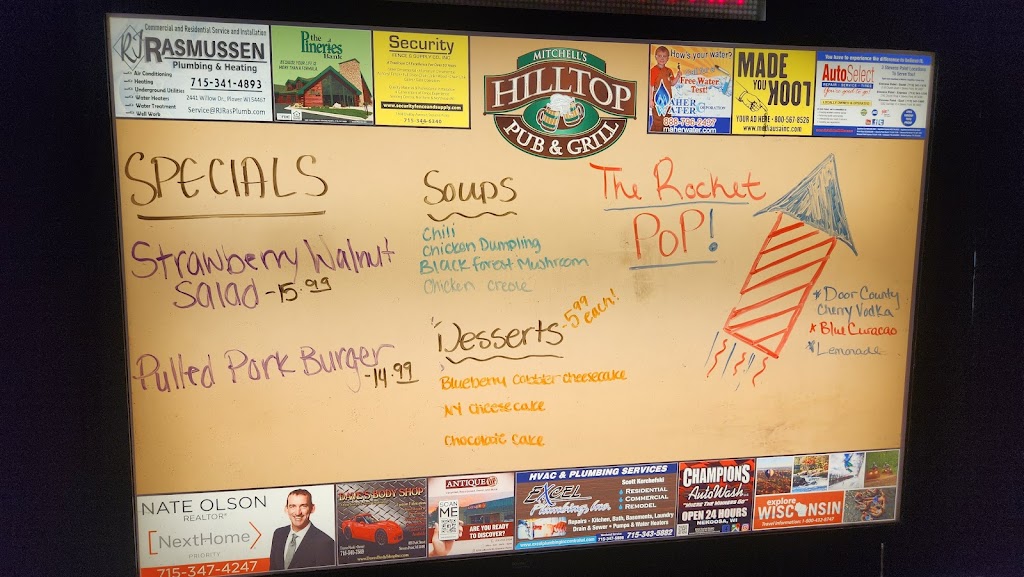 Commercial and Residential Service and Installation
RJ RASMUSSEN
Plumbing & Heating
Air Conditioning
Heating
Underground Utilities
Water Heaters
Water Treatment
Well Work
715-341-4893
2441 Willow Dr., Plover WI 54467
Service@RJRasPlumb.com
the
Pineries
Bank
Security
FENCE & SUPPLY CO., INC.
www.securityfenceandsupply.com
MITCHELL'S
HILLTOP
PUB & GRILL
How's your water?
Free Water
Test!
MAHER
WATER
CORPORATION
maherwater.com
MADE
YOU
LOOK
YOUR AD HERE • 800-567-8526
AutoSelect
REPAIR • SERVICE • TIRES
SPECIALS
Strawberry Walnut
Salad - 15.99
Pulled Pork Burger
- 14.99
Soups
Chili
Chicken Dumpling
Black Forest Mushroom
Chicken Creole
Desserts - 5.99 each!
Blueberry cobbler cheesecake
NY cheesecake
Chocolate Cake
The Rocket
POP!
* Door County
Cherry Vodka
* Blue Curacao
* Lemonade
NATE OLSON
REALTOR®
[NextHome]
PRIORITY
715-347-4247
DAVE'S BODY SHOP
ANTIQUE
SCAN
ME
ARE YOU READY
TO DISCOVER?
HVAC & PLUMBING SERVICES
EXCEL
Plumbing, Inc
RESIDENTIAL
COMMERCIAL
REMODEL
Repairs - Kitchen, Bath, Basements, Laundry
Drain & Sewer - Pumps & Water Heaters
715-343-5882
CHAMPIONS
AutoWash
"WHERE THE WINNERS GO"
OPEN 24 HOURS
NEKOOSA, WI
explore
WISCONSIN